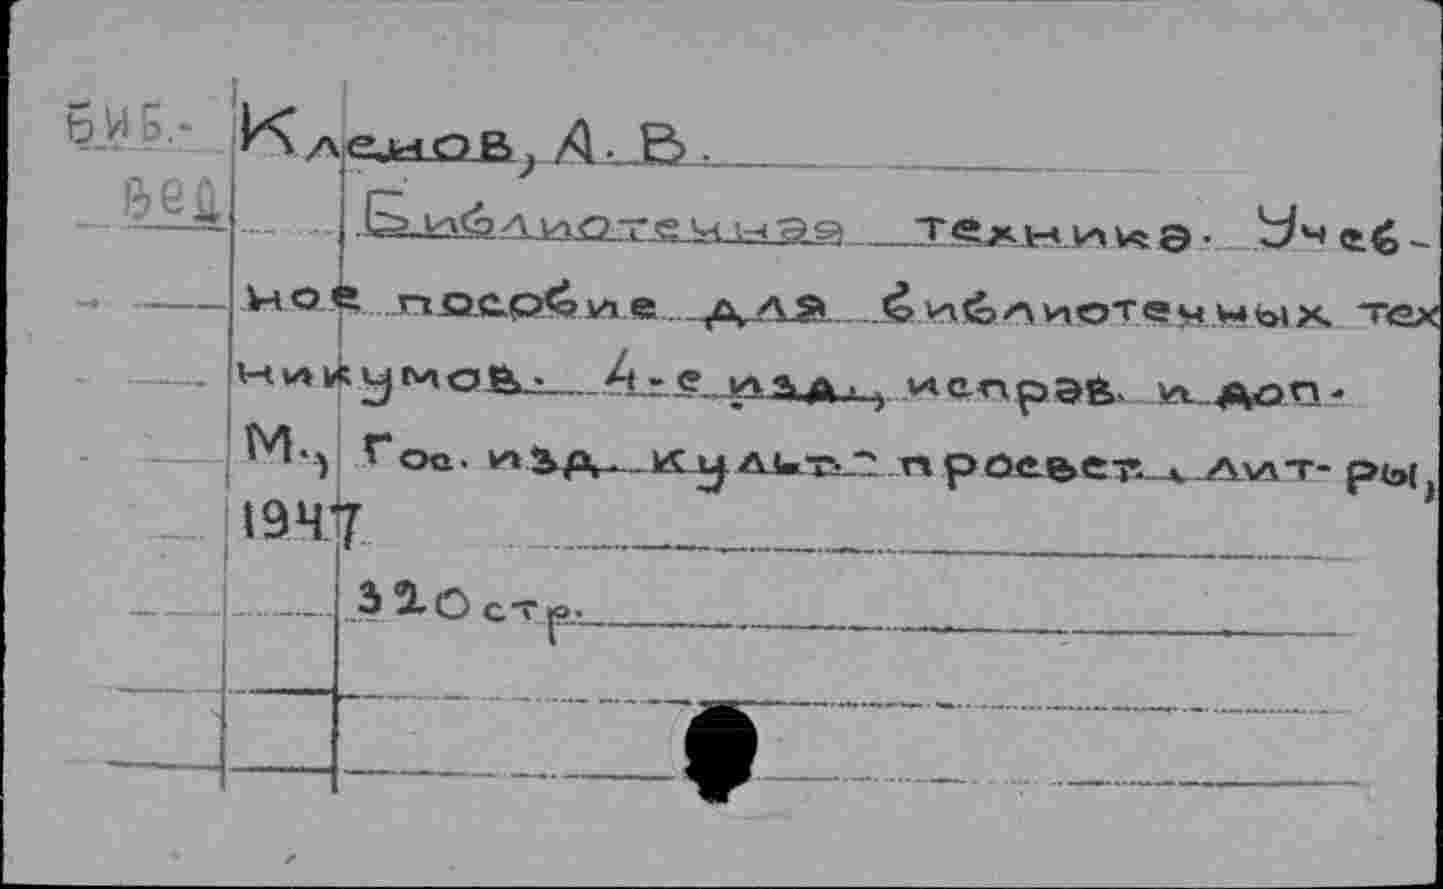 БИБ.- Кленов, А. В.
вед Библиотечная техника. Учеб-
ное пособие для библиотечных тех
никумов. 4-е изд., исправ. и доп.
М., Гос. изд. культ.- просвет. лит-ры,
1947
320 стр.